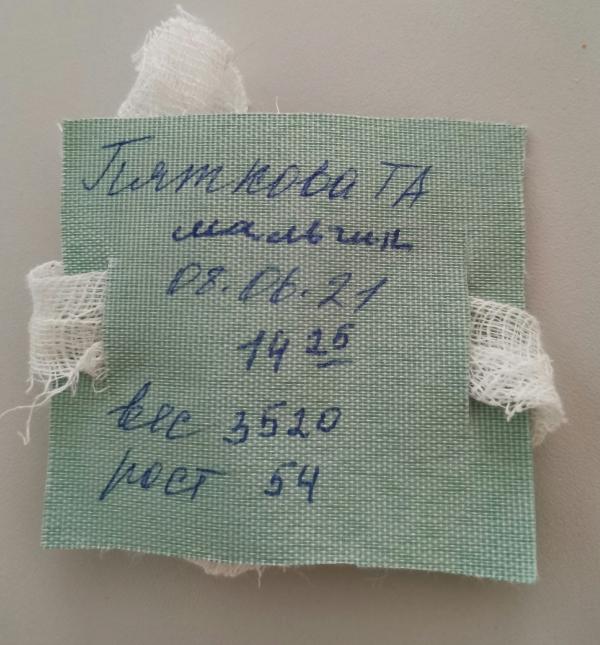 Пяткова ТА
мальчик
08.06.21
14 25
вес 3520
рост 54